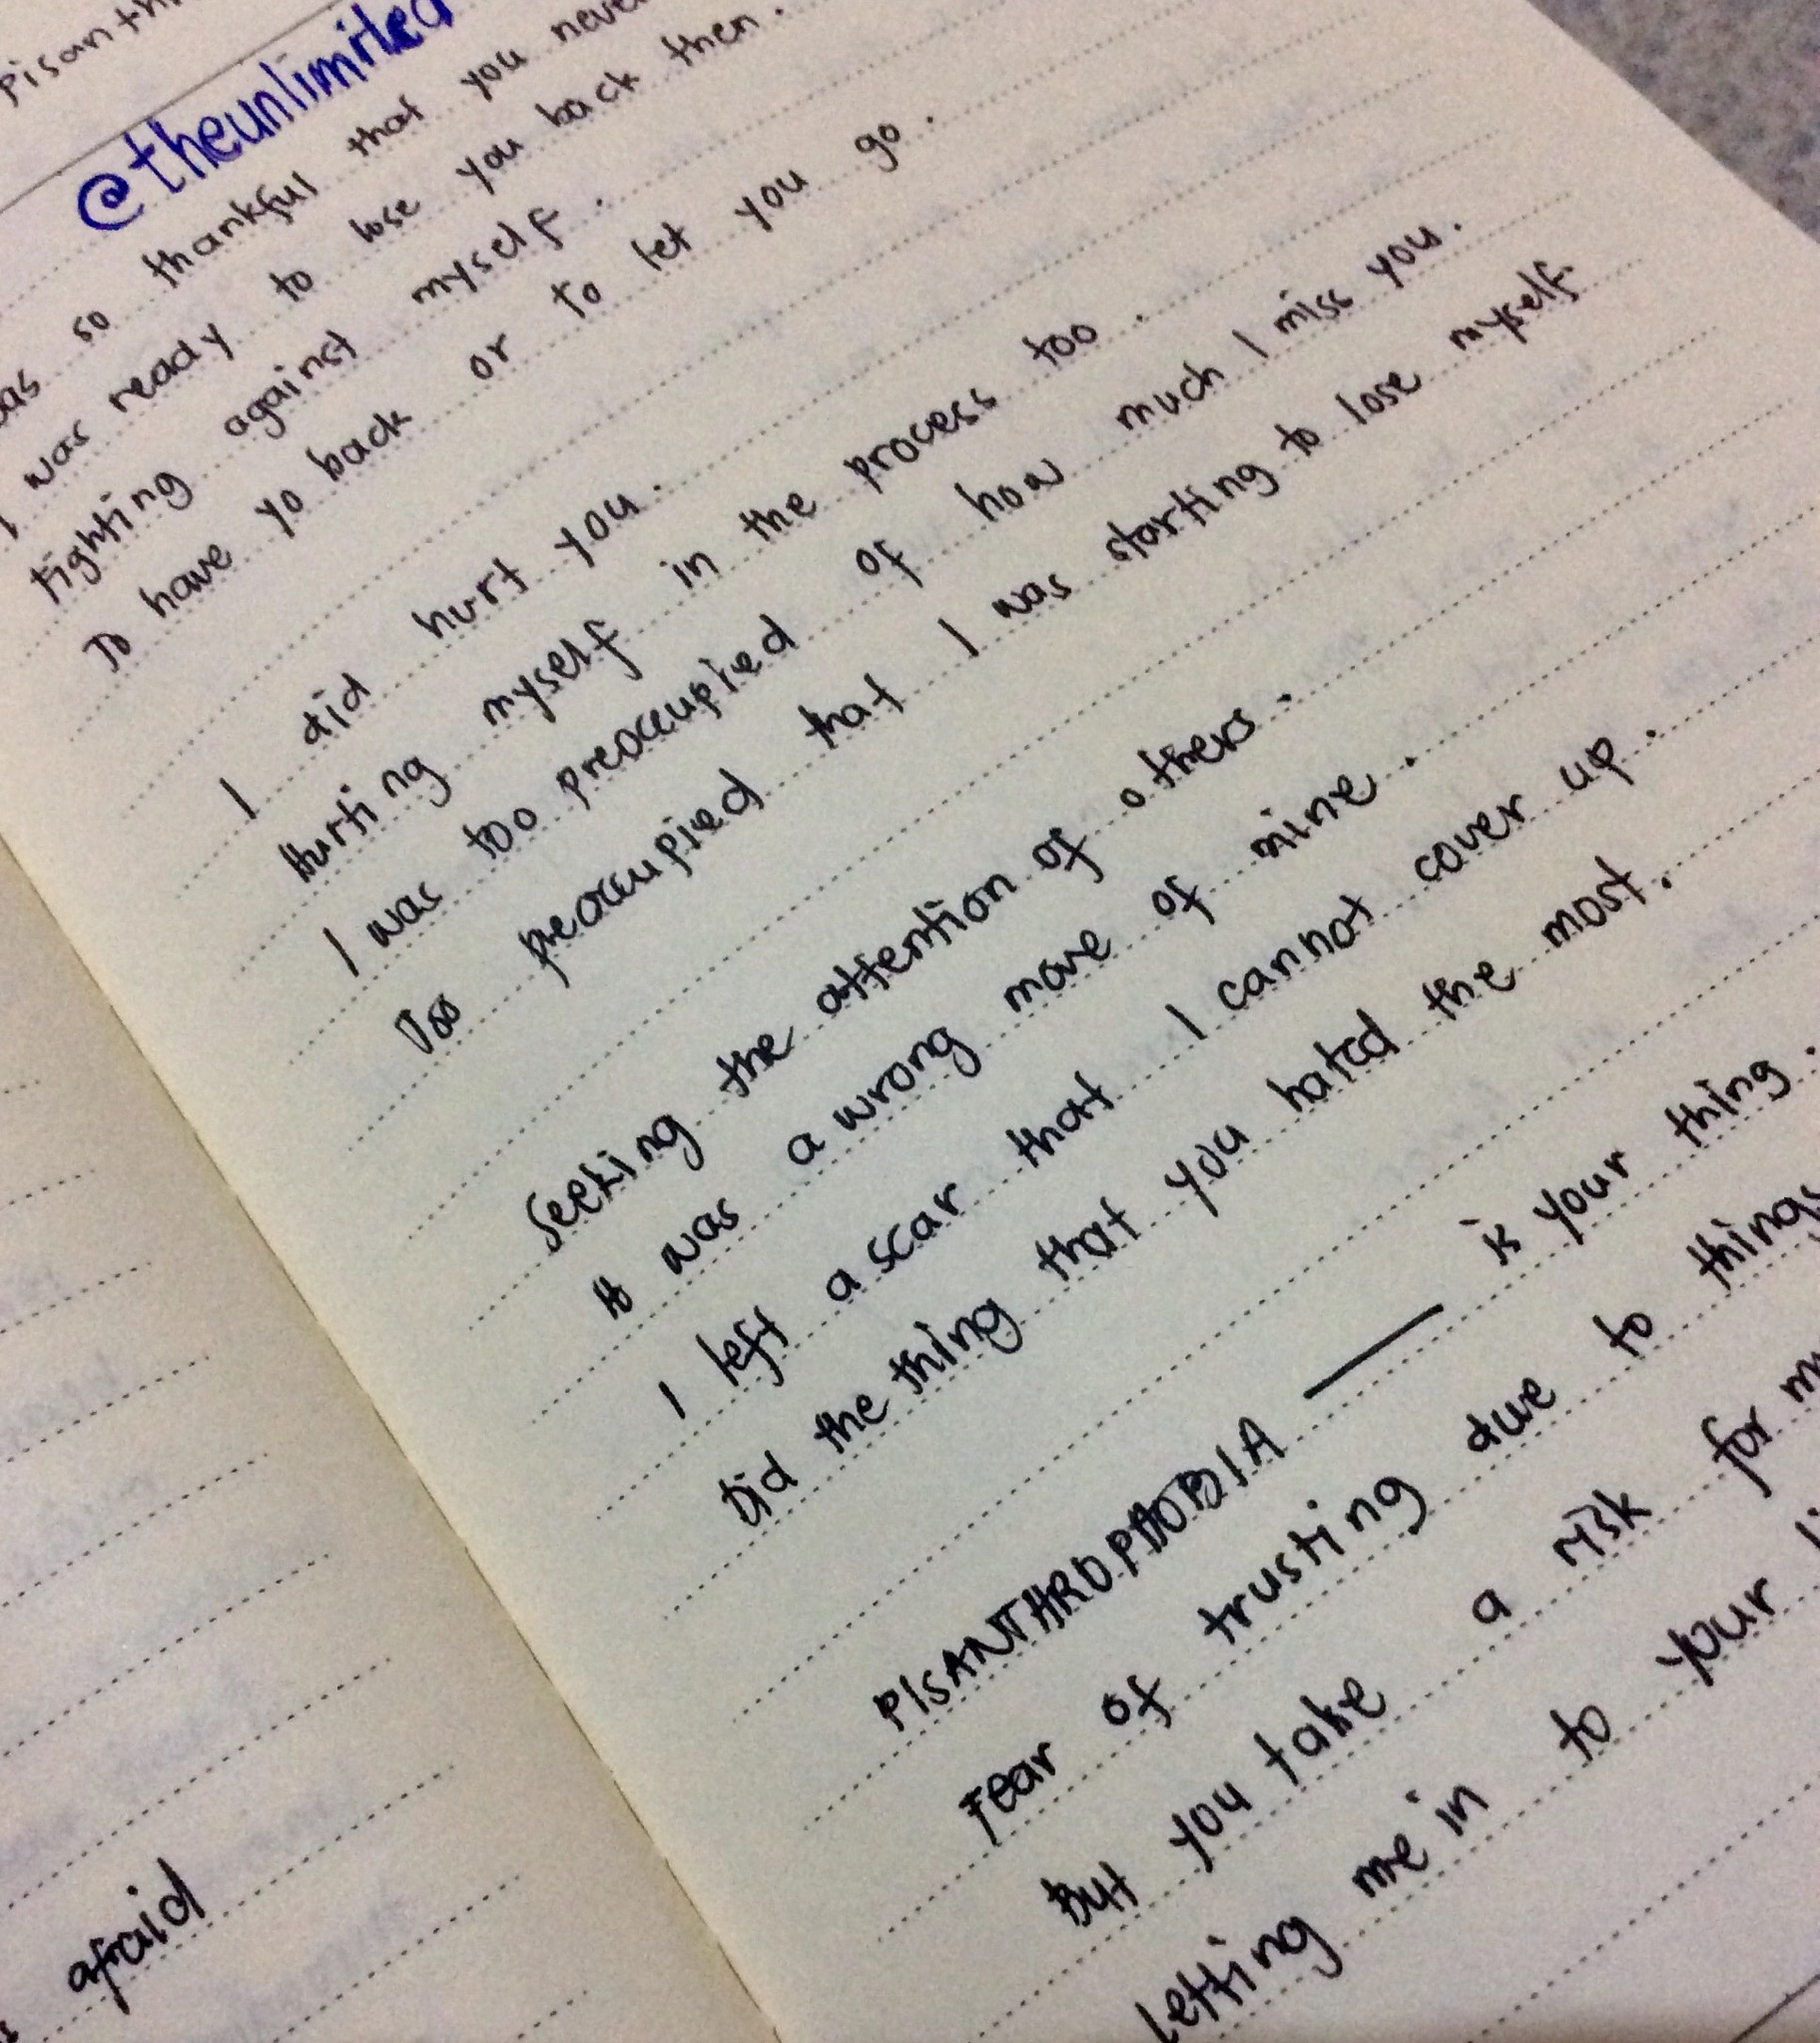 Pisanth
@theunlimited
as so thankful that you neve
I was ready to lose you back then.
fighting against myself.
To have yo back or to let you go.
I did hurt you.
Hurting myself in the process too.
I was too preoccupied of how much I miss you.
Too peoccupied that I was starting to lose myself.
Seeking the attention of others.
It was a wrong move of mine.
I left a scar that I cannot cover up.
Did the thing that you hated the most.
PISANTHROPHOBIA — is your thing.
Fear of trusting due to things
But you take a risk for m
letting me in to your li
afraid